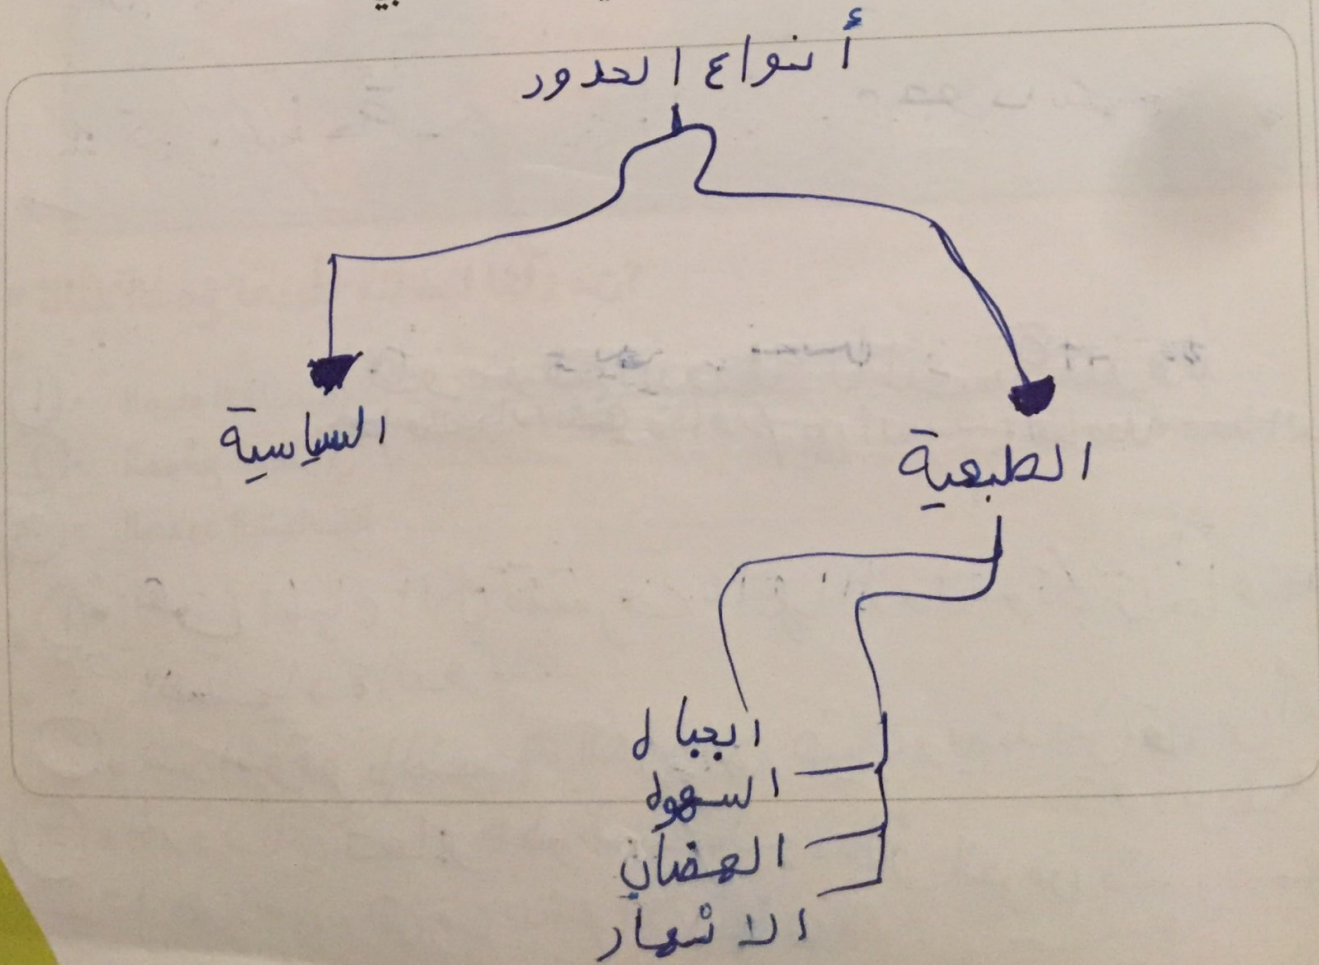 أنواع الحدود
السياسية
الطبعية
الجبال
السهول
الهضاب
الانهار